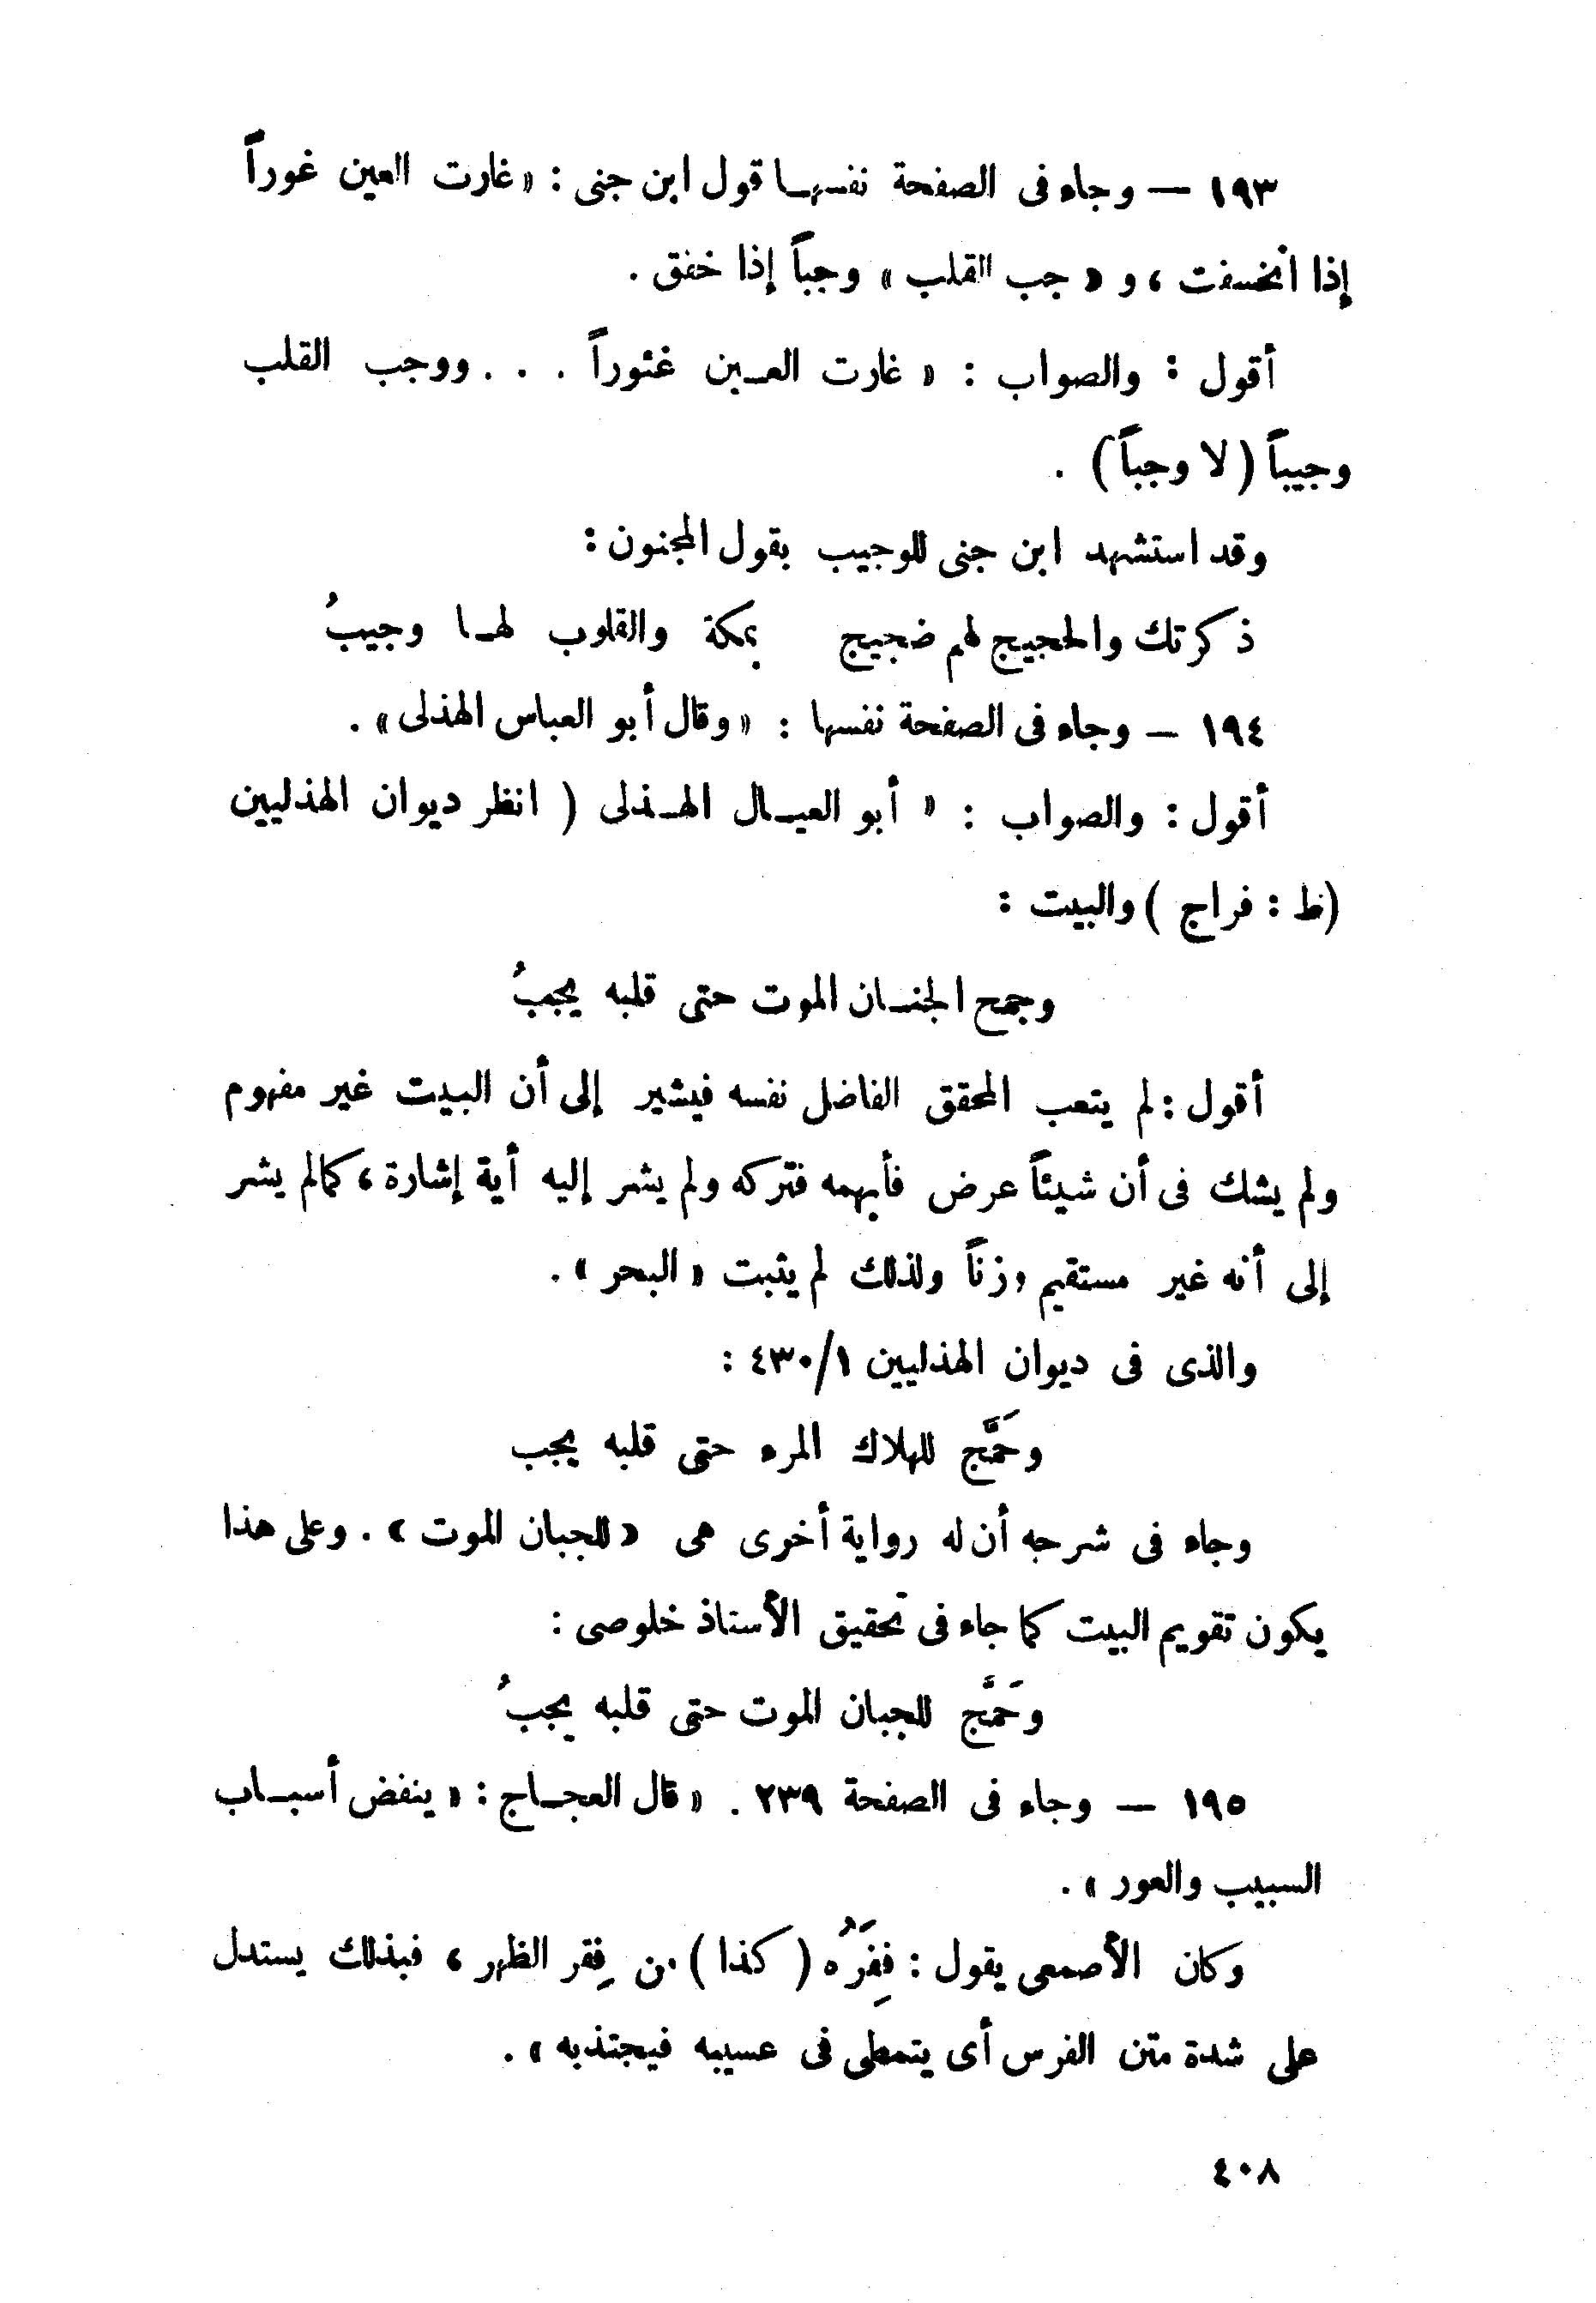 ١٩٣ — وجاء فى الصفحة نفسها قول ابن جنى : « غارت العين غوراً
إذا انخسفت ، و « جب القلب » وجباً إذا خفق .
أقول : والصواب : « غارت العين غئوراً . . . ووجب القلب
وجيباً ( لا وجباً ) .
وقد استشهد ابن جنى للوجيب بقول المجنون :
ذكرتك والحجيج لهم ضجيج بمكة والقلوب لها وجيبُ
١٩٤ — وجاء فى الصفحة نفسها : « وقال أبو العباس الهذلى » .
أقول : والصواب : « أبو العيال الهذلى ( انظر ديوان الهذليين
(ط : فراج ) والبيت :
وجمح الجنان الموت حتى قلبه يجبُ
أقول : لم يتعب المحقق الفاضل نفسه فيشير إلى أن البيت غير مفهوم
ولم يشك فى أن شيئاً عرض فأبهمه فتركه ولم يشر إليه أية إشارة ، كما لم يشر
إلى أنه غير مستقيم وزناً ولذلك لم يثبت « البحر » .
والذى فى ديوان الهذليين ٤٣٠/١ :
وحَمَّج للهلاك المرء حتى قلبه يجب
وجاء فى شرحه أن له رواية أخرى هى « للجبان الموت » . وعلى هذا
يكون تقويم البيت كما جاء فى تحقيق الأستاذ خلوصى :
وحَمَّج للجبان الموت حتى قلبه يجبُ
١٩٥ — وجاء فى الصفحة ٢٣٩ . « قال العجاج : « ينفض أسباب
السبيب والعور » .
وكان الأصمعى يقول : فِقَرُه ( كذا ) من فِقر الظهر ، فبذلك يستدل
على شدة متن الفرس أى يتمطى فى عسيبه فيجتذبه » .
٤٠٨